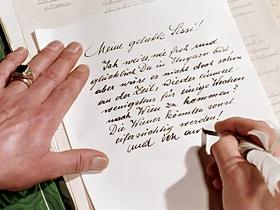 Meine geliebte Sissi!
Ich weiss, wie froh und
glücklich Du in Ungarn bist,
aber wäre es nicht doch schon
an der Zeit, wieder einmal
wenigstens für einige Wochen
nach Wien zu kommen?
Die Wiener könnten sonst
eifersüchtig werden
und ich au